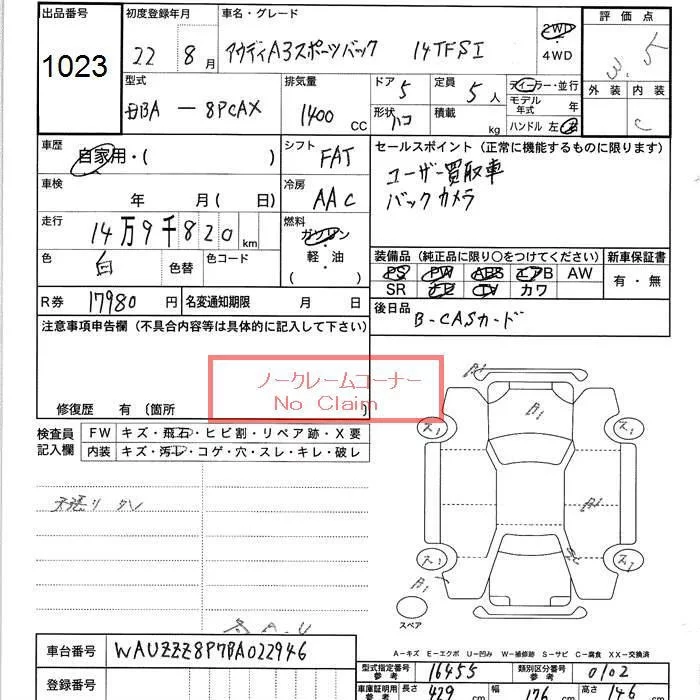 出品番号
1023
初度登録年月
22 8月
車名・グレード
アウディA3スポーツバック 14TFSI
2WD
4WD
評価点
3.5
外装 内装
C
型式
DBA - 8PCAX
排気量
1400 CC
ドア 5
形状 ハコ
定員 5人
積載 kg
ディーラー・並行
モデル年式 年
ハンドル 左・右
車歴
自家用・( )
シフト
FAT
セールスポイント (正常に機能するものに限ります)
ユーザー買取車
バックカメラ
車検
年 月( 日)
冷房
AAC
走行
14万9千820km
燃料
ガソリン
・
軽・油
( )
色
白
色替
色コード
装備品 (純正品に限り〇をつけてください)
PS PW ABS エアB AW
SR ナビ TV カワ
新車保証書
有・無
R券 17980円
名変通知期限 月 日
後日品
B-CASカード
注意事項申告欄 (不具合内容等は具体的に記入して下さい)
ノークレームコーナー
No Claim
修復歴 有〔箇所
検査員
記入欄
FW キズ・飛石・ヒビ割・リペア跡・X要
内装 キズ・汚レ・コゲ・穴・スレ・キレ・破レ
天張り タレ
スペア
A-キズ E-エクボ U-凹み W-補修跡 S-サビ C-腐食 XX-交換済
車台番号 WAUZZZ8P7BA022946
登録番号
型式指定番号
参考
16455
類別区分番号
参考
0102
車庫証明用
参考
長さ 429 cm
幅 176 cm
高さ 146 cm